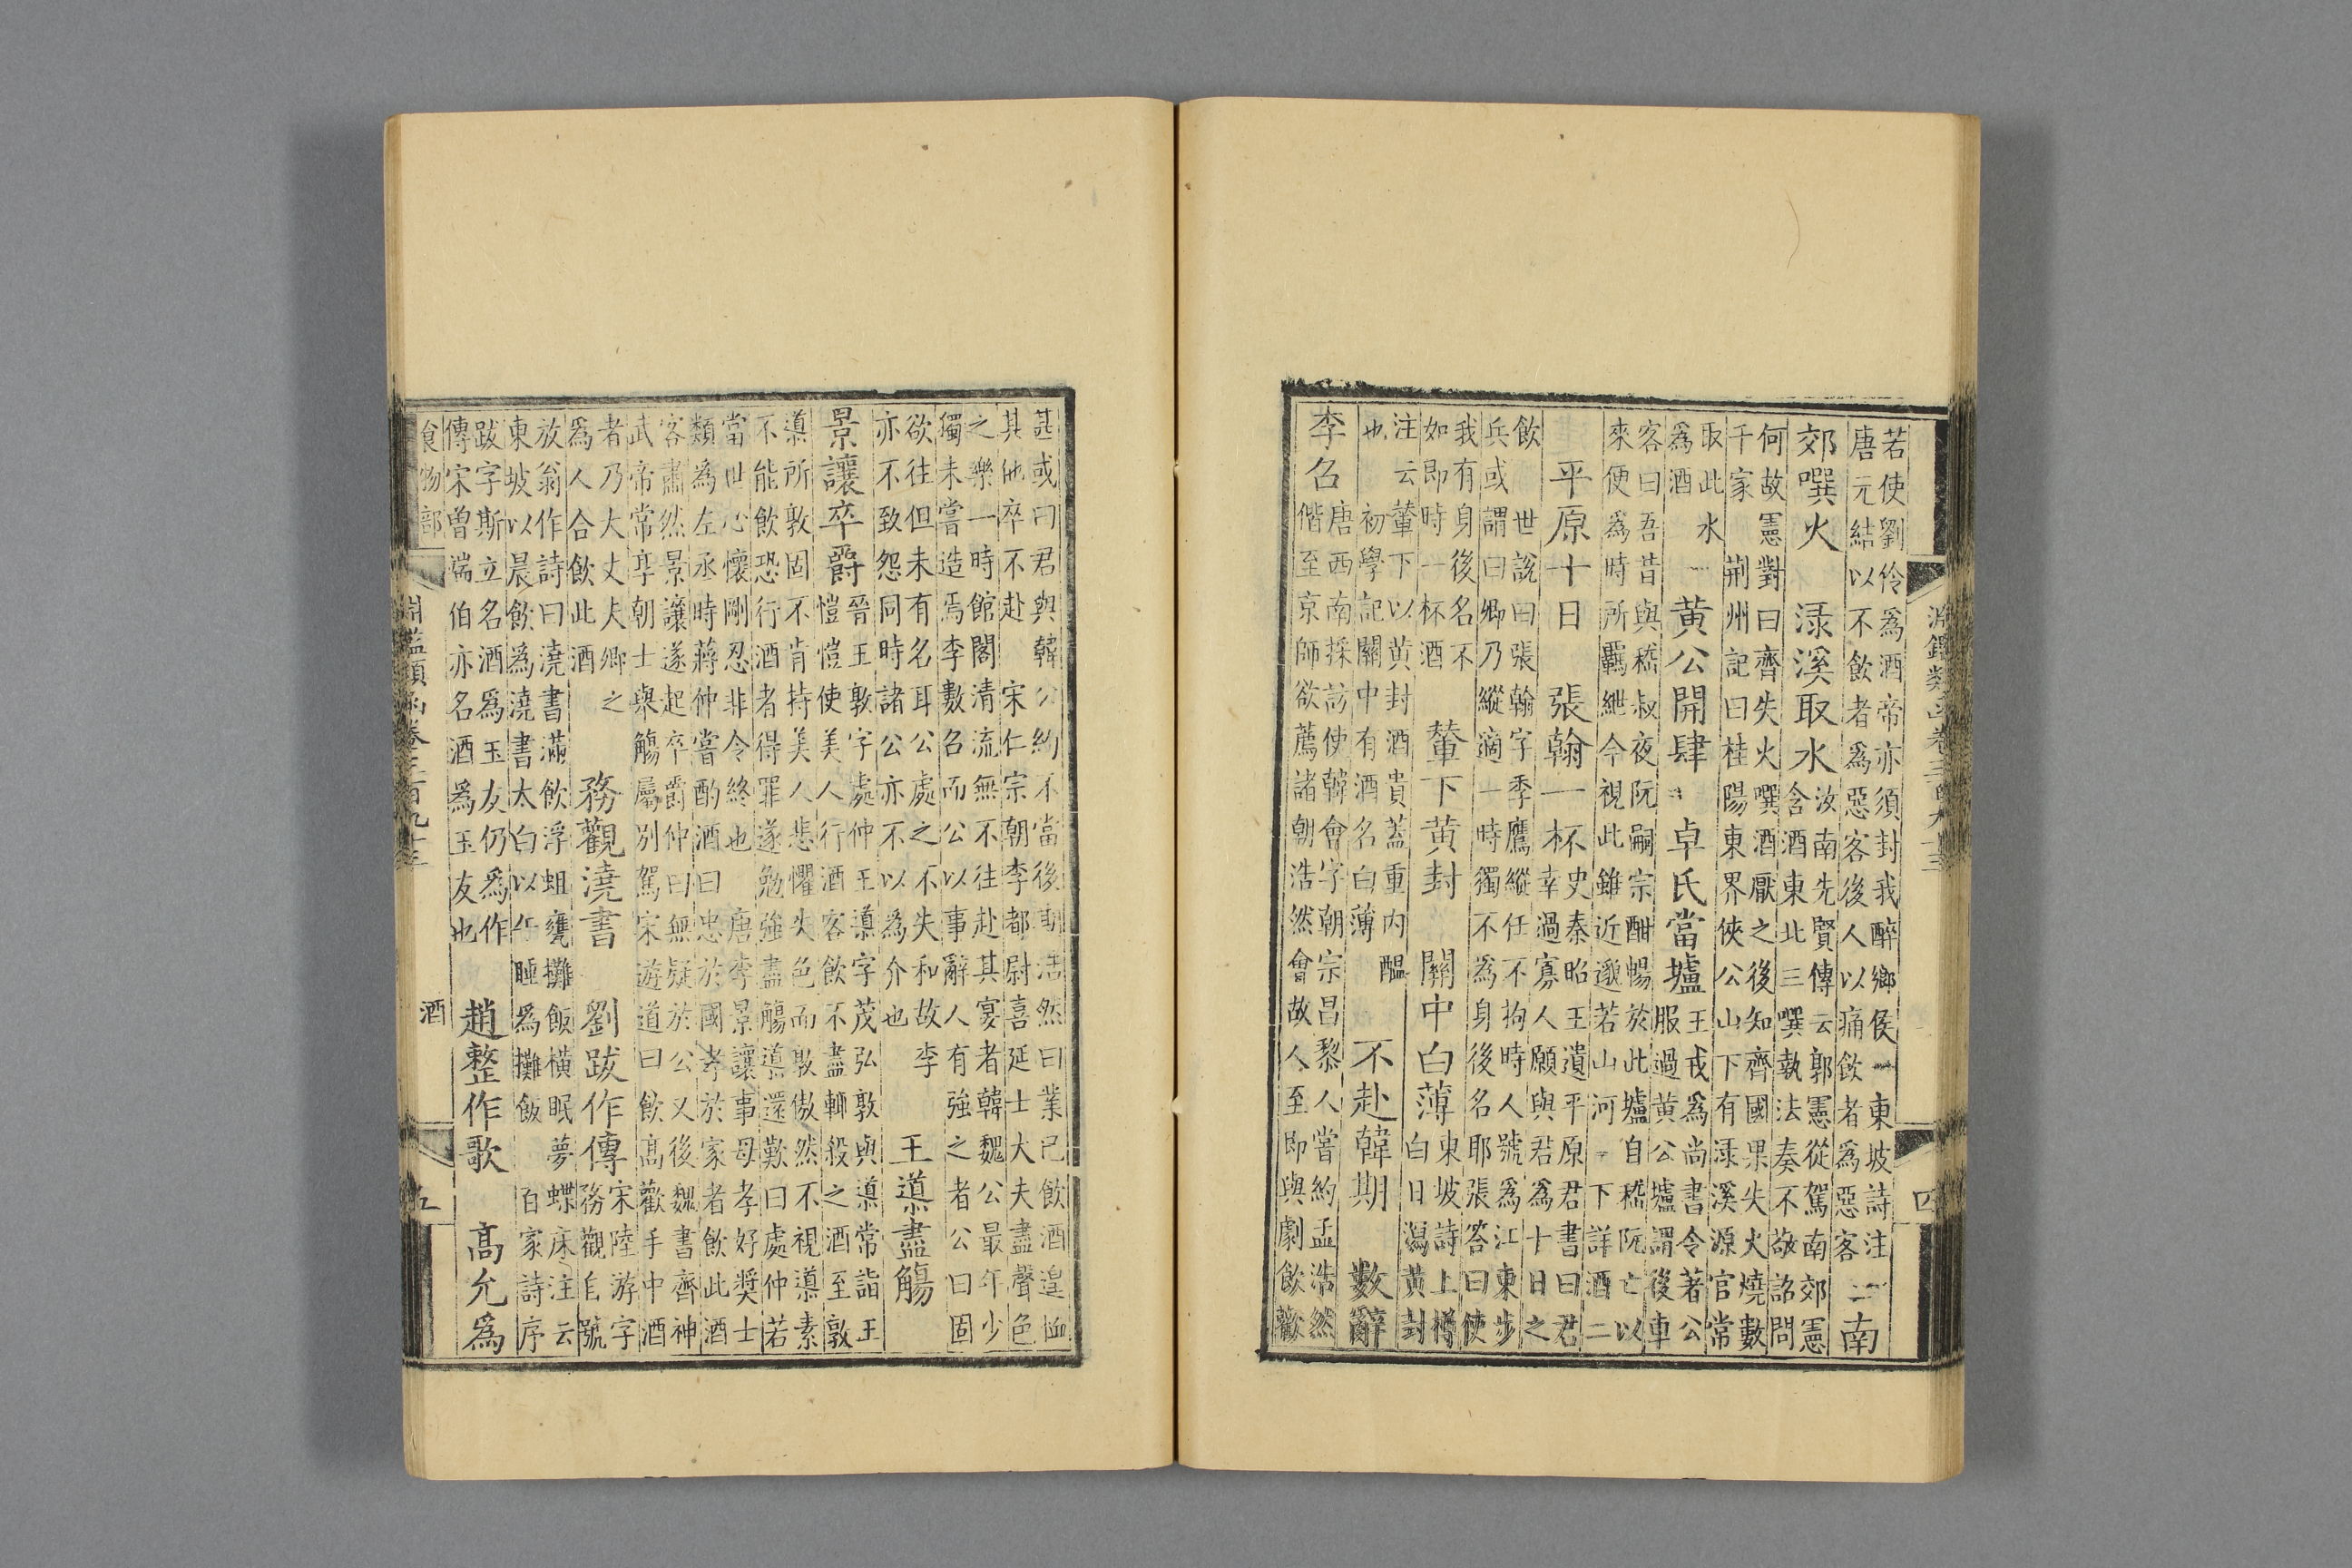 淵鑑類函卷三百九十三
四
若使劉伶爲酒帝亦須封我醉鄉侯一東坡詩注
唐元結以不飲者爲惡客後人以痛飲者爲惡客
二南
郊噀火　淥溪取水
汝南先賢傳云郭憲從駕南郊憲
含酒東北三噀執法奏不敬詔問
何故憲對曰齊失火噀酒厭之後知齊國果失火燒數
千家　荆州記曰桂陽東界俠公山下有淥溪源官常
取此水
爲酒
黄公開肆　卓氏當壚
王戎爲尚書令著公
服過黄公壚謂後車
客曰吾昔與嵇叔夜阮嗣宗酣暢於此壚自嵇阮亡以
來便爲時所羈紲今視此雖近邈若山河　下詳酒二
平原十日　張翰一杯
史秦昭王遺平原君書曰君
幸過寡人願與君爲十日之
飲　世說曰張翰字季鷹縱任不拘時人號爲江東步
兵或謂曰卿乃縱適一時獨不爲身後名耶張答曰使
我有身後名不
如即時一杯酒
輦下黄封　關中白薄
東坡詩上樽
白日瀉黄封
注云輦下以黄封酒貴蓋重内醖
也　初學記關中有酒名白薄
不赴韓期　數辭
李召
唐西南採訪使韓會字朝宗昌黎人嘗約孟浩然
偕至京師欲薦諸朝浩然會故人至即與劇飲歡
甚或曰君與韓公約不當後期浩然曰業已飲酒遑恤
其他卒不赴　宋仁宗朝李都尉喜延士大夫盡聲色
之樂一時館閣清流無不往赴其宴者韓魏公最年少
獨未嘗造焉李數召而公以事辭人有強之者公曰固
欲往但未有名耳公處之不失和故李
亦不致怨同時諸公亦不以爲介也
王導盡觴
景讓卒爵
晉王敦字處仲王導字茂弘敦與導常詣王
愷愷使美人行酒客飲不盡輒殺之酒至敦
導所敦固不肯持美人悲懼失色而敦傲然不視導素
不能飲恐行酒者得罪遂勉強盡觴導還歎曰處仲若
當世心懷剛忍非令終也　唐李景讓事母孝好奬士
類為左丞時蔣仲嘗酌酒曰忠於國孝於家者飲此酒
客肅然景讓遂起卒爵仲曰無疑於公又後魏書齊神
武帝常享朝士舉觴屬別駕宋遊道曰飲高歡手中酒
者乃大丈夫卿之
爲人合飲此酒
務觀澆書　劉跋作傳
宋陸游字
務觀自號
放翁作詩曰澆書滿飲浮蛆甕攤飯橫眠夢蝶床注云
東坡以晨飲爲澆書太白以午睡爲攤飯　百家詩序
跋字斯立名酒爲玉友仍爲作
傳宋曾端伯亦名酒爲玉友也
趙整作歌　高允爲
食物部
淵鑑類函卷三百九十三
酒
五